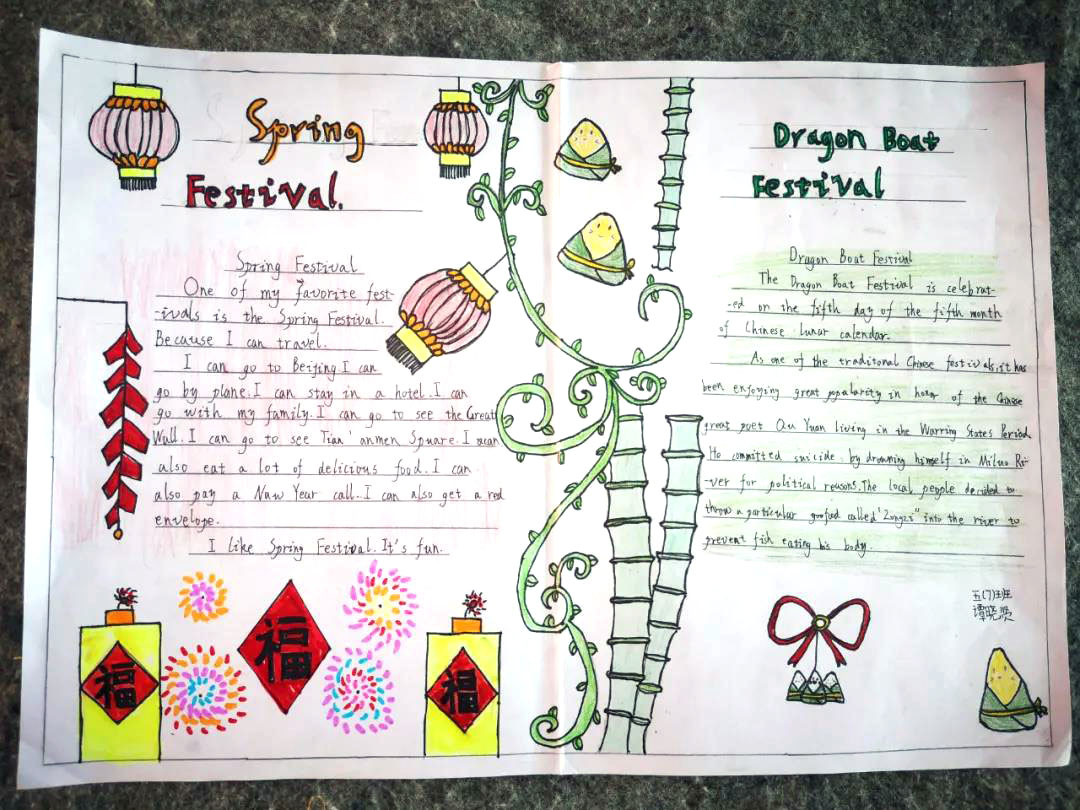 Spring
Festival.
Spring Festival
One of my favorite fest
-ivals is the Spring Festival.
Because I can travel.
I can go to Beijing.I can
go by plane.I can stay in a hotel.I can
go with my family.I can go to see the Great
Wall.I can go to see Tian'anmen Spuare.I
also eat a lot of delicious food.I can
also pay a Naw Year call.I can also get a red
envelope.
I like Spring Festival.It's fun.
福
福
福
Dragon Boat
Festival
Dragon Boat Festival
The Dragon Boat Festival is celebrat-
-ed on the fifth day of the fifth month
of Chinese lunar calendar.
As one of the traditonal Chinese festivals,it has
been enjoying great popularity in honor of the Chinese
great poet Qu Yuan living in the Warring States Period
He committed suicide by drowning himself in Miluo Ri-
-ver for political reasons.The local people decided to
throw a particular called "Zongzi" into the river to
prevent fish eating his body.
五(7)班
谭晓